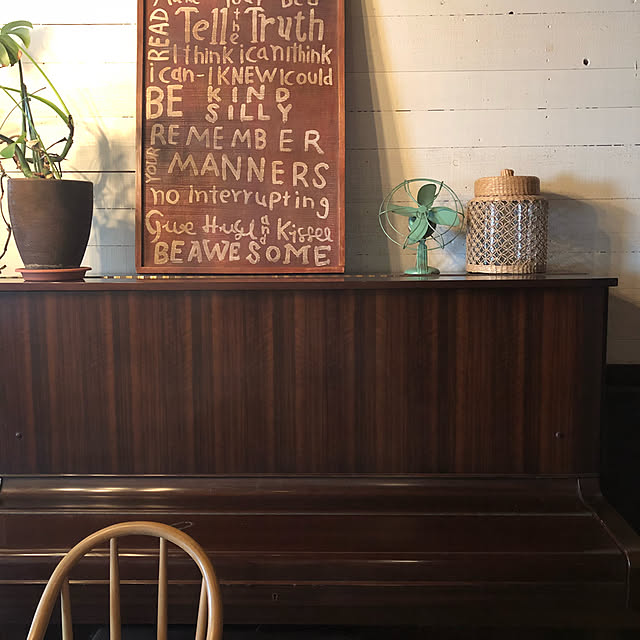 Make Your Bed
READ
Tell the Truth
I think i can i think
i can - I KNEW I COULD
BE KIND
SILLY
REMEMBER
YOUR MANNERS
no interrupting
Give Hugs and Kisses
BE AWESOME